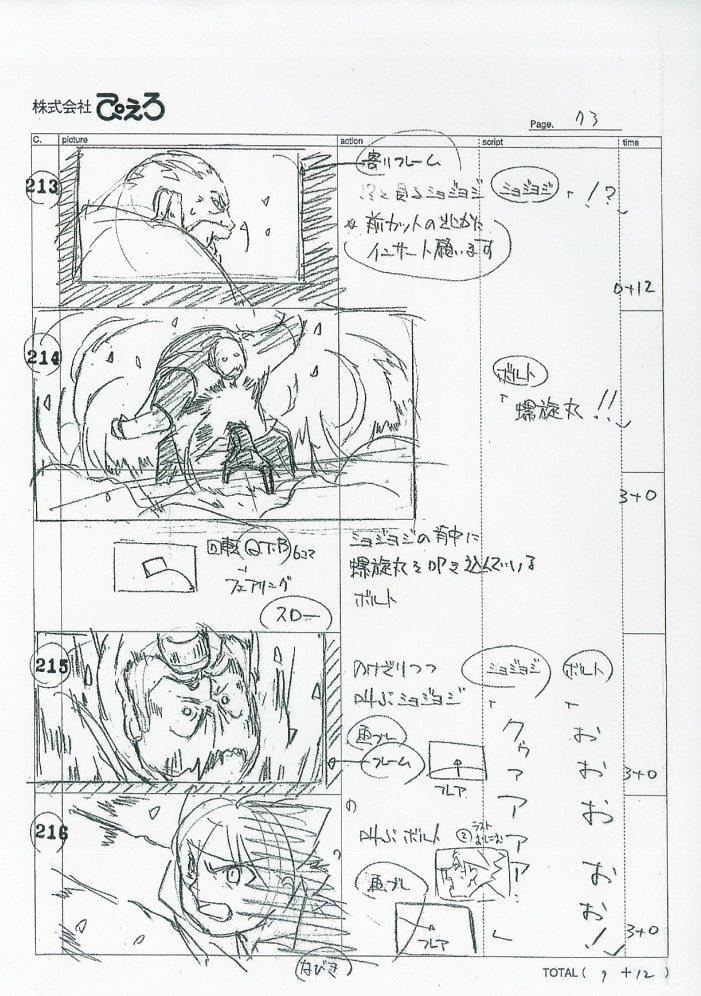 株式会社 ぴえろ
Page. 73
C. picture action script time
213
寄りフレーム
と見るミョジョジ
ミョジョジ
「!?」
※前カットの
インサート願います
0+12
214
ボルト
「螺旋丸!!」
3+0
ミョジョジの背中に
螺旋丸を叩き込んでいる
ボルト
回転 Q T.B
フェアリング
スロー
215
のけぞりつつ
叫ぶミョジョジ
ミョジョジ
「グゥアアアア
ボルト
「おおおおお!」
画ブレ
フレーム
フレア
3+0
216
叫ぶボルト
②ラスト
画ブレ
フレア
なびき
3+0
TOTAL ( 9 + 12 )